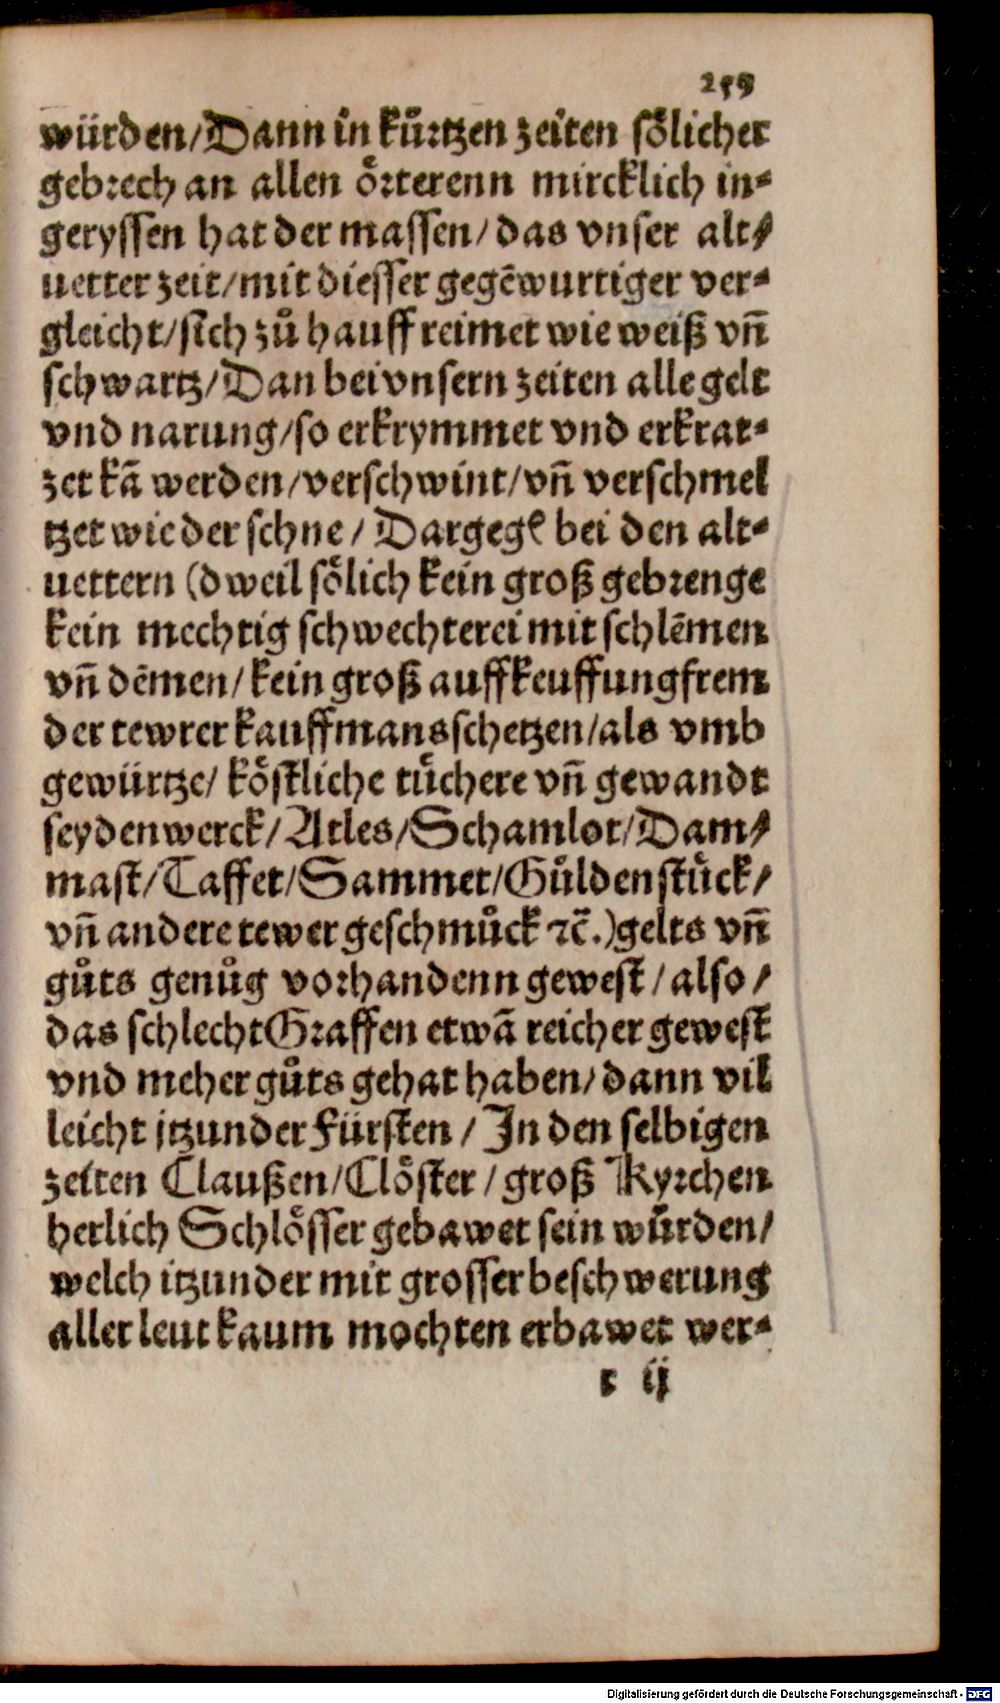 259
würden/Dann in kürtzen zeiten sölicher
gebrech an allen örterenn mircklich in-
geryssen hat der massen/das vnser alt-
uetter zeit/mit diesser gegēwurtiger ver-
gleicht/sich zů hauff reimet wie weiß vn̄
schwartz/Dan bei vnsern zeiten alle gelt
vnd narung/so erkrymmet vnd erkrat-
zet kā werden/verschwint/vn̄ verschmel
tzet wie der schne/Dargegē bei den alt-
uettern (dweil sölich kein groß gebrenge
kein mechtig schwechterei mit schlēmen
vn̄ dēmen/kein groß auffkeuffung frem
der tewrer kauffmansschetzen/als vmb
gewürtze/köstliche tüchere vn̄ gewandt
seydenwerck/Atles/Schamlot/Dam-
mast/Taffet/Sammet/Güldenstück/
vn̄ andere tewer geschmůck ⁊c̄.)gelts vn̄
gůts genůg vorhandenn gewest/also/
das schlecht Graffen etwā reicher gewest
vnd meher gůts gehat haben/dann vil
leicht jtzunder Fürsten/In den selbigen
zeiten Claußen/Clöster/groß Kyrchen
herlich Schlösser gebawet sein würden/
welch itzunder mit grosser beschwerung
aller leut kaum mochten erbawet wer-
r ij
Digitalisierung gefördert durch die Deutsche Forschungsgemeinschaft - DFG